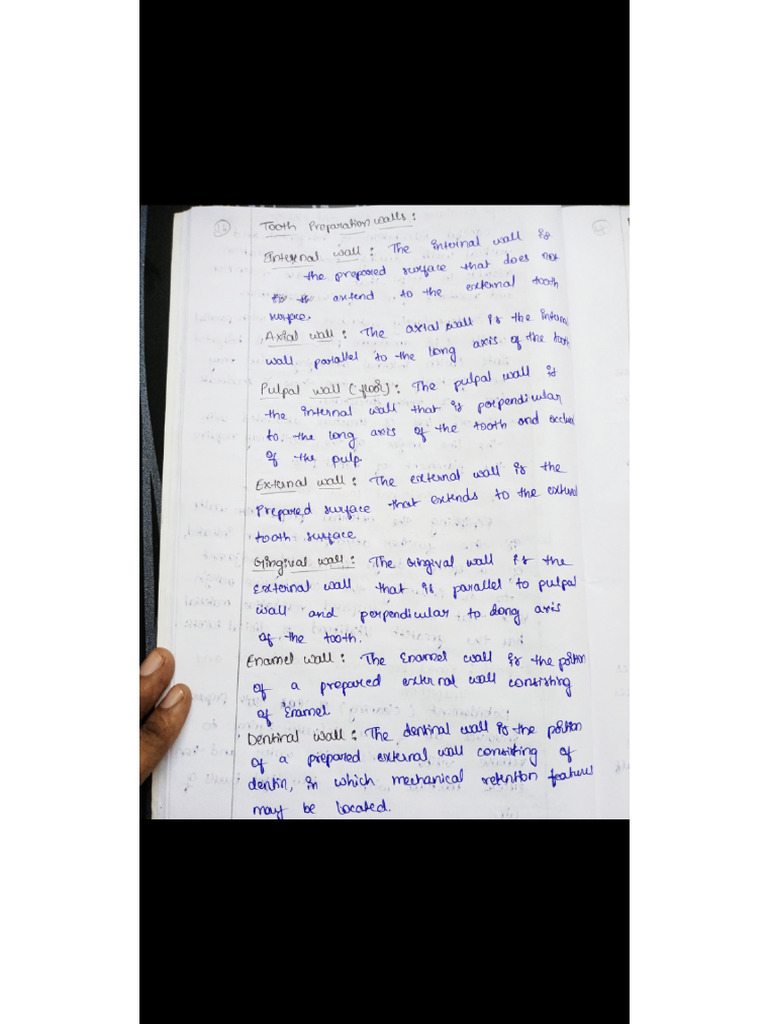 Tooth Preparation walls:
Internal wall: The internal wall is
the prepared surface that does not
extend to the external tooth
surface.
Axial wall: The axial wall is the internal
wall parallel to the long axis of the tooth
Pulpal wall (floor): The pulpal wall is
the internal wall that is perpendicular
to. the long axis of the tooth and occlusal
of the pulp.
External wall: The external wall is the
Prepared surface that extends to the external
tooth surface
Gingival wall: The Gingival wall is the
External wall that is parallel to pulpal
wall and perpendicular to long axis
of the tooth.
Enamel wall: The Enamel wall is the portion
of a prepared external wall consisting
of Enamel
Dentinal wall: The dentinal wall is the portion
of a prepared external wall consisting of
dentin, in which mechanical retention features
may be located.